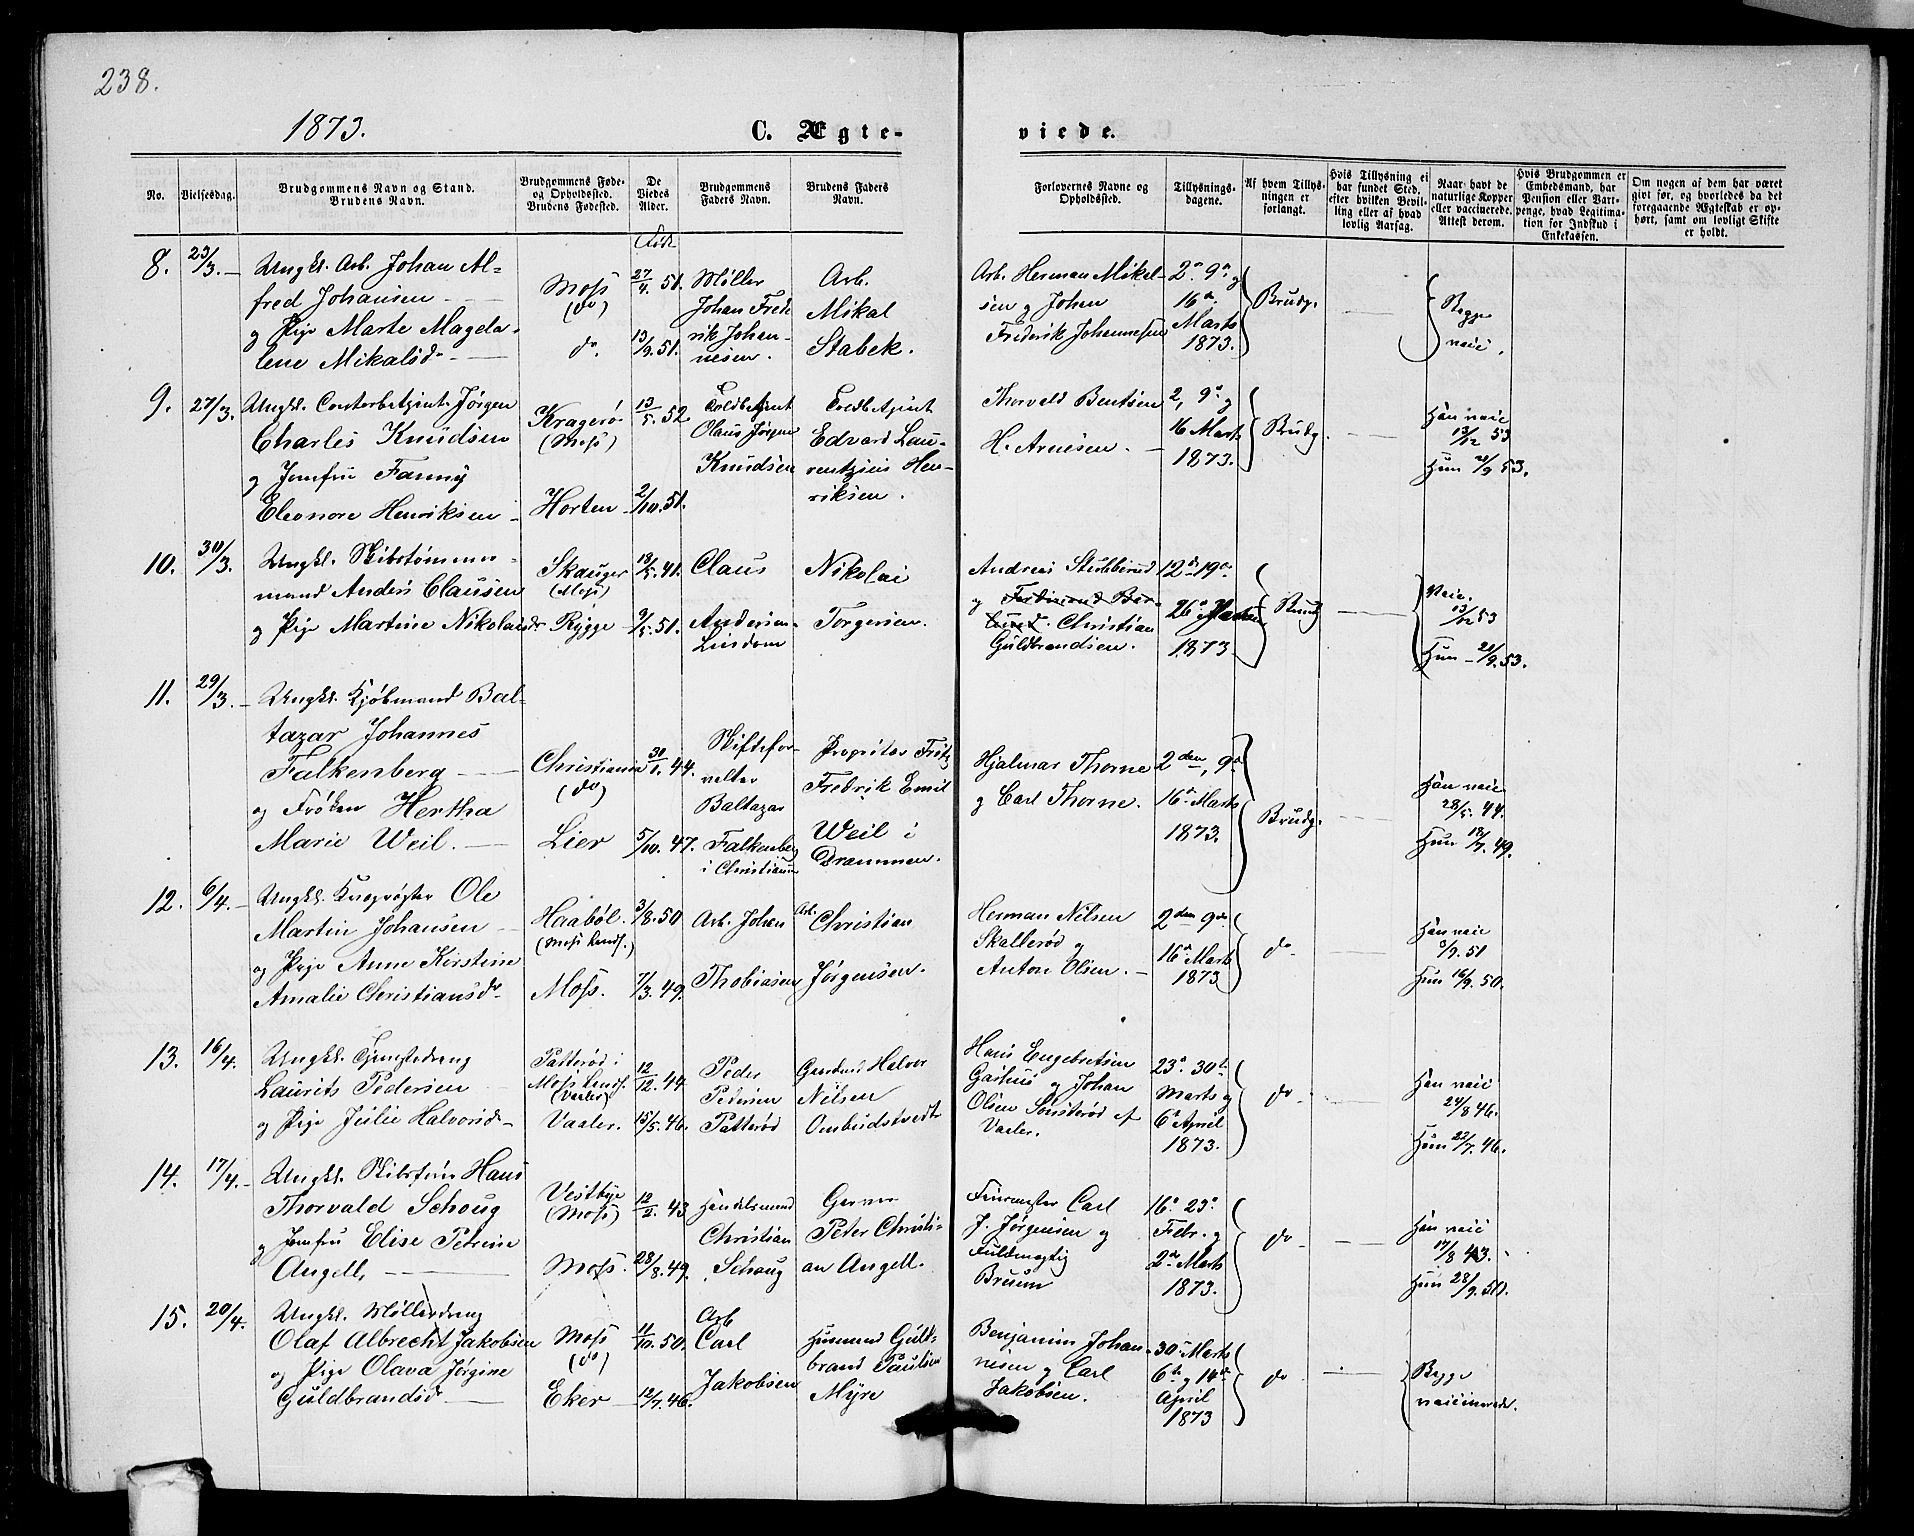 238.
1873.
C. Ægte-
viede.
No.
Vielsesdag.
Brudgommens Navn og Stand.
Brudens Navn.
Brudgommens Føde-
og Opholdssted.
Brudens Fødested.
De
Viedes
Alder.
Brudgommens
Faders Navn.
Brudens Faders
Navn.
Forlovernes Navne og
Opholdssted.
Tillysnings-
dagene.
Af hvem Tillys-
ningen er
forlangt.
Hvis Tillysning ei
har fundet Sted,
efter hvilken Bevil-
ling eller af hvad
lovlig Aarsag.
Naar havt de
naturlige Kopper
eller vaccinerede.
Attest derom.
Hvis Brudgommen er
Embedsmand, har
Pension eller Vart-
penge, hvad Legitima-
tion for Indskud i
Enkekassen.
Om nogen af dem har været
givt før, og hvorledes da det
foregaaende Ægteskab er op-
hørt, samt om lovligt Skifte
er holdt.
8.
23/3.
Ungkl. Arb. Johan Al-
fred Johansen
og Pige Marte Magda-
lene Mikalsd.
Moss
(do)
do.
Født
27/4. 51.
13/9. 51.
Møller
Johan Frede
rik Johan-
nesen.
Arb.
Mikal
Stabek.
Arb. Herman Mikel-
sen og Johan
Frederik Johannesen
2. 9. og
16.
Marts
1873.
Brudg.
Begge
vaic.
9.
27/3.
Ungkl. Contorbetjent Jørgen
Charles Knudsen
og Jomfru Fanny
Eleonore Henriksen
Kragerø
(Moss)
Horten
13/5. 52.
2/10. 51.
Toldbetjent
Olaus Jørgen
Knudsen
Toldbetjent
Edvard Lau-
rentzius Hen-
riksen.
Thorvald Bentsen
H. Arnesen.
2, 9. og
16 Marts
1873.
Brudg.
Han vaic
13/12 53
Hun 21/9 53.
10.
30/3.
Ungkl. Skibstømmer-
mand Anders Clausen
og Pige Martine Nikolaisdr
Skauger
(Moss)
Rygge
18/5. 41.
9/5. 51.
Claus
Andersen
Nikolai
Torgersen.
Andreas Stubberud
og Ferdinand Ber-
lund. Christian
Guldbrandsen.
12. 19.
26. Marts
1873.
Brudg.
Vaic.
13/12 53
Hun 21/9. 53.
11.
29/3.
Ungkl. Kjøbmand Bal-
tazar Johannes
Falkenberg
og Frøken Hertha
Marie Weil.
Christiania
(do)
Lier
30/1. 44.
5/10. 47.
Skiftefor-
valter
Baltazar
Falkenberg
i Christiania
Proprietær Fritz
Fredrik Emil
Weil i
Drammen.
Hjalmar Thorne
og Carl Thorne.
2den, 9.
16. Marts
1873.
Brudg.
Han vaic
28/5. 44.
Hun 18/7. 49.
12.
6/4.
Ungkl. Ole
Martin Johansen
og Pige Anne Kirstine
Amalie Christiansd.
Haabøl.
(Moss Lands.)
Moss.
3/8. 50
7/3. 49.
Arb. Johan
Thobiasen
Arb.
Christian
Jørgensen.
Herman Nilsen
Skallerød og
Anton Olsen.
2den 9de
16. Marts
1873
do
Han vaic
3/9. 51
Hun 16/9. 50.
13.
16/4.
Ungkl. Tjenestedreng
Laurits Pedersen
og Pige Julie Halvorsd.
Patterød i
Moss Lands.
(Vaaler)
Vaaler.
12/12. 44
15/5. 46.
Peder
Pedersen
Patterød
Gaardmd. Halvor
Nilsen
Ombudstvedt
Hans Engebretsen
Gashus og Johan
Olsen Sønsterød af
Vaaler.
23. 30te
Marts og
6. April
1873.
do
Han vaic
24/8 46.
Hun 22/7. 46.
14.
17/4.
Ungkl. Hans
Thorvald Schoug
og Jomfru Elise Petrine
Angell.
Vestbye
(Moss)
Moss.
12/2. 43
28/8. 49.
Handelsmand
Christian
Schoug
Garver
Peter Christi-
an Angell.
Carl
J. Jørgensen og
Fuldmægtig
Bruun
16. 23.
Febr. og
2. Marts
1873.
do
Han vaic
17/8 43.
Hun 28/9. 50.
15.
20/4.
Ungkl. Møllerdreng
Olaf Albrecht Jakobsen
og Pige Olava Jørgine
Guldbrandsd.
Moss
(do)
Eker
11/10. 50.
12/7. 46.
Arb
Carl
Jakobsen
Husmand Guld-
brand Paulsen
Myre
Benjamin Johan-
nesen og Carl
Jakobsen.
30. Marts
6te og 14de
April
1873
do
Begge
vaicinerede.